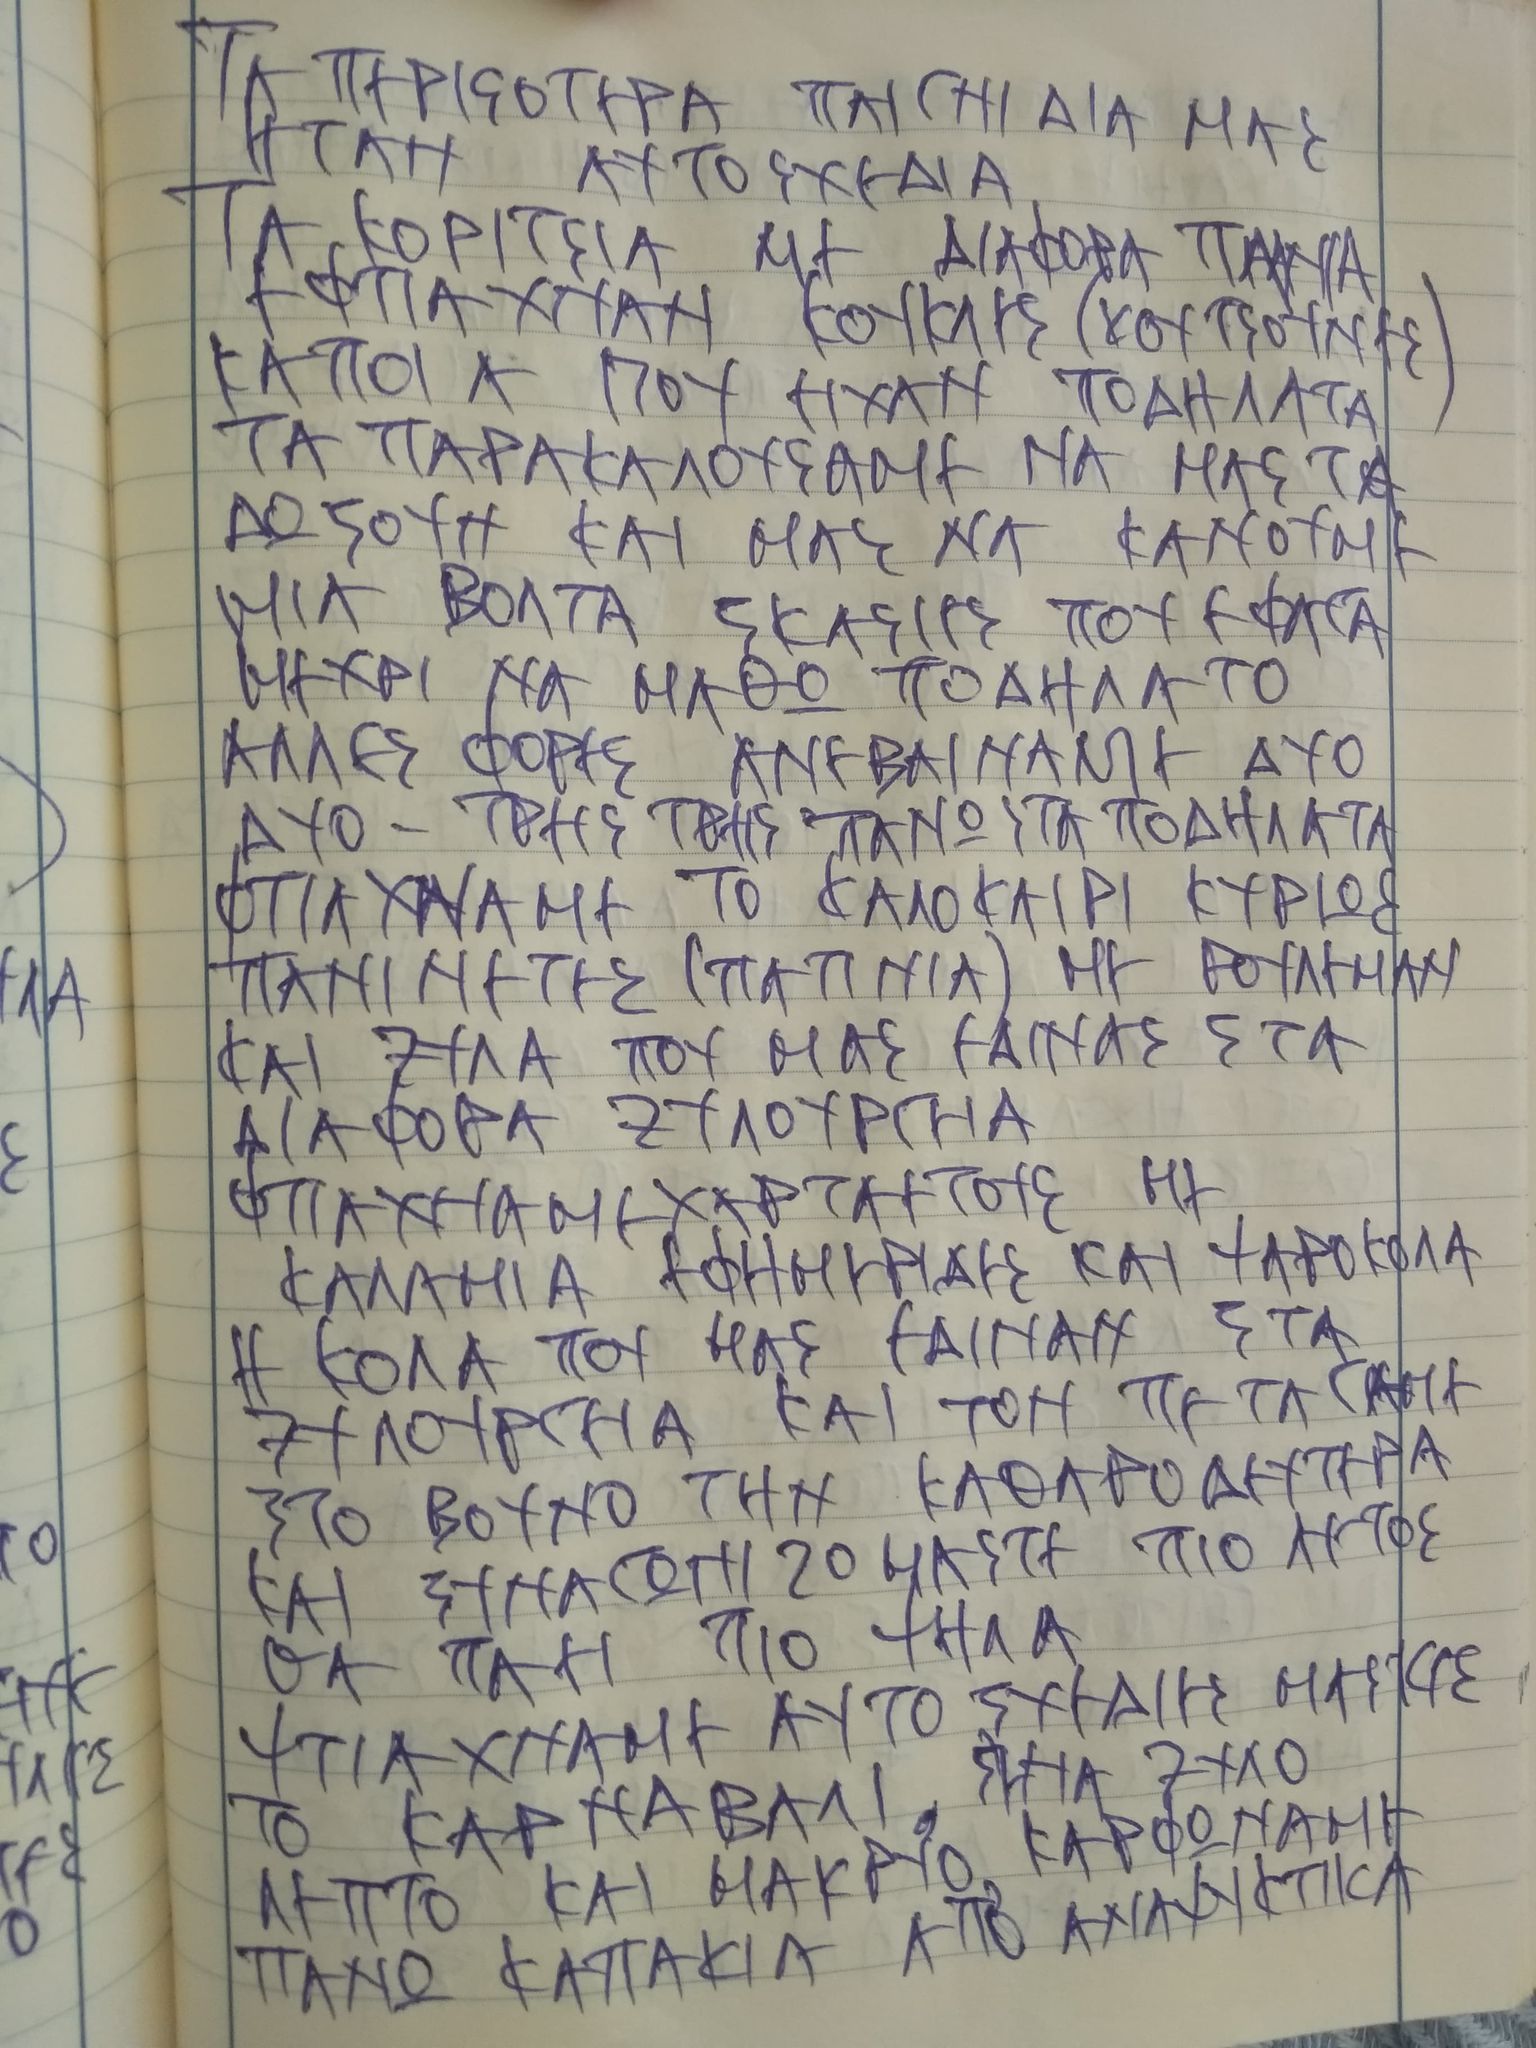 ΤΑ ΠΕΡΙΣΟΤΕΡΑ ΠΑΙΓΗΙΔΙΑ ΜΑΣ
ΗΤΑΝ ΑΥΤΟΣΧΕΔΙΑ
ΤΑ ΚΟΡΙΤΣΙΑ ΜΕ ΔΙΑΦΟΡΑ ΠΑΝΙΑ
ΕΦΤΙΑΧΝΑΝ ΚΟΥΚΛΕΣ (ΚΟΥΤΣΟΥΝΕΣ)
ΚΑΠΟΙΑ ΠΟΥ ΗΧΑΝ ΠΟΔΗΛΑΤΑ
ΤΑ ΠΑΡΑΚΑΛΟΥΣΑΜΕ ΝΑ ΜΑΣ ΤΑ
ΔΩΣΟΥΝ ΚΑΙ ΜΑΣ ΝΑ ΚΑΝΟΥΜΕ
ΜΙΑ ΒΟΛΤΑ ΣΚΑΣΙΕΣ ΠΟΥ ΕΦΑΓΑ
ΜΕΧΡΙ ΝΑ ΜΑΘΩ ΠΟΔΗΛΑΤΟ
ΑΛΛΕΣ ΦΟΡΕΣ ΑΝΕΒΑΙΝΑΜΕ ΔΥΟ
ΔΥΟ - ΤΡΗΣ ΤΡΗΣ ΠΑΝΩ ΣΤΑ ΠΟΔΗΛΑΤΑ
ΦΤΙΑΧΝΑΜΕ ΤΟ ΚΑΛΟΚΑΙΡΙ ΚΥΡΙΩΣ
ΠΑΝΙΝΕΤΕΣ (ΠΑΠΙΝΙΑ) ΜΕ ΡΟΥΛΕΜΑΝ
ΚΑΙ ΞΥΛΑ ΠΟΥ ΜΑΣ ΕΔΙΝΑΣ ΣΤΑ
ΔΙΑΦΟΡΑ ΞΥΛΟΥΡΓΗΑ
ΦΤΙΑΧΝΑΜΕ ΧΑΡΤΑΕΤΟΥΣ ΜΕ
ΚΑΛΑΜΙΑ ΕΦΗΜΕΡΙΔΕΣ ΚΑΙ ΨΑΡΟΚΟΛΑ
Η ΚΟΛΑ ΠΟΥ ΜΑΣ ΕΔΙΝΑΝ ΣΤΑ
ΞΥΛΟΥΡΓΗΑ ΚΑΙ ΤΟΝ ΠΕΤΑΓΑΜΕ
ΣΤΟ ΒΟΥΝΟ ΤΗΝ ΚΑΘΑΡΟΔΕΥΤΕΡΑ
ΚΑΙ ΣΥΝΑΓΩΝΙΖΟΜΑΣΤΕ ΠΙΟ ΑΕΤΟΣ
ΘΑ ΠΑΕΙ ΠΙΟ ΨΗΛΑ
ΦΤΙΑΧΝΑΜΕ ΑΥΤΟΣΧΕΔΙΕΣ ΜΑΣΚΕΣ
ΤΟ ΚΑΡΝΑΒΑΛΙ, ΣΕΝΑ ΞΥΛΟ
ΛΕΠΤΟ ΚΑΙ ΜΑΚΡΥΟ ΚΑΡΦΩΝΑΜΕ
ΠΑΝΩ ΚΑΠΑΚΙΑ ΑΠΟ ΑΝΑΨΥΚΤΙΚΑ